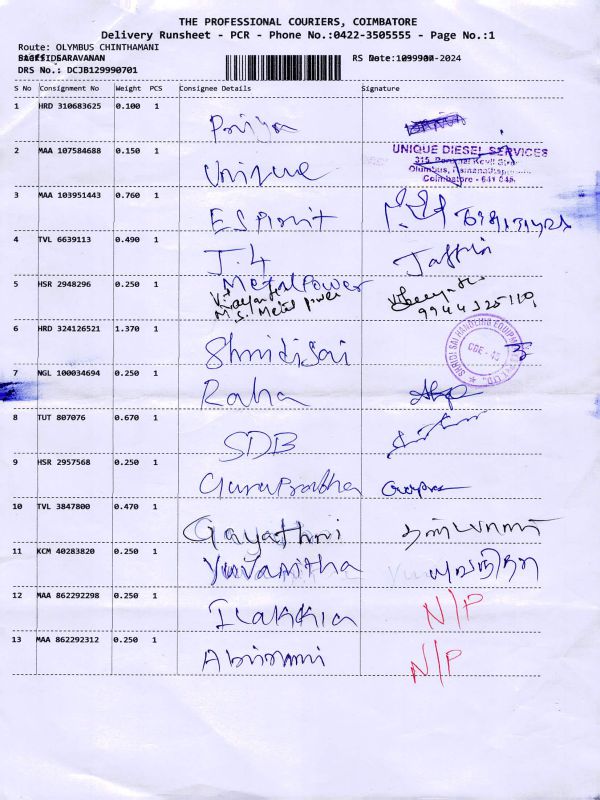 THE PROFESSIONAL COURIERS, COIMBATORE
Delivery Runsheet - PCR - Phone No.:0422-3505555 - Page No.:1
Route: OLYMBUS CHINTHAMANI
SARAVANAN RS -2024
DRS No.: DCJB129990701
S No Consignment No Weight PCS Consignee Details Signature
1 HRD 310683625 0.100 1 Priya
2 MAA 107584688 0.150 1 Unique UNIQUE DIESEL SERVICES
Coimbatore - 641 045.
3 MAA 103951443 0.760 1 ESPirit
4 TVL 6639113 0.490 1 J.4
5 HSR 2948296 0.250 1 Metal Power
M.S. Metal power
6 HRD 324126521 1.370 1 Shridisai SHRIDI SAI EQUIPMENT CBE - 45
7 NGL 100034694 0.250 1 Raha
8 TUT 807076 0.670 1 SDB
9 HSR 2957568 0.250 1 GuruPrabha
10 TVL 3847800 0.470 1 Gayathri
11 KCM 40283820 0.250 1 Yuvanitha
12 MAA 862292298 0.250 1 Ilakkia N/P
13 MAA 862292312 0.250 1 Abirami N/P